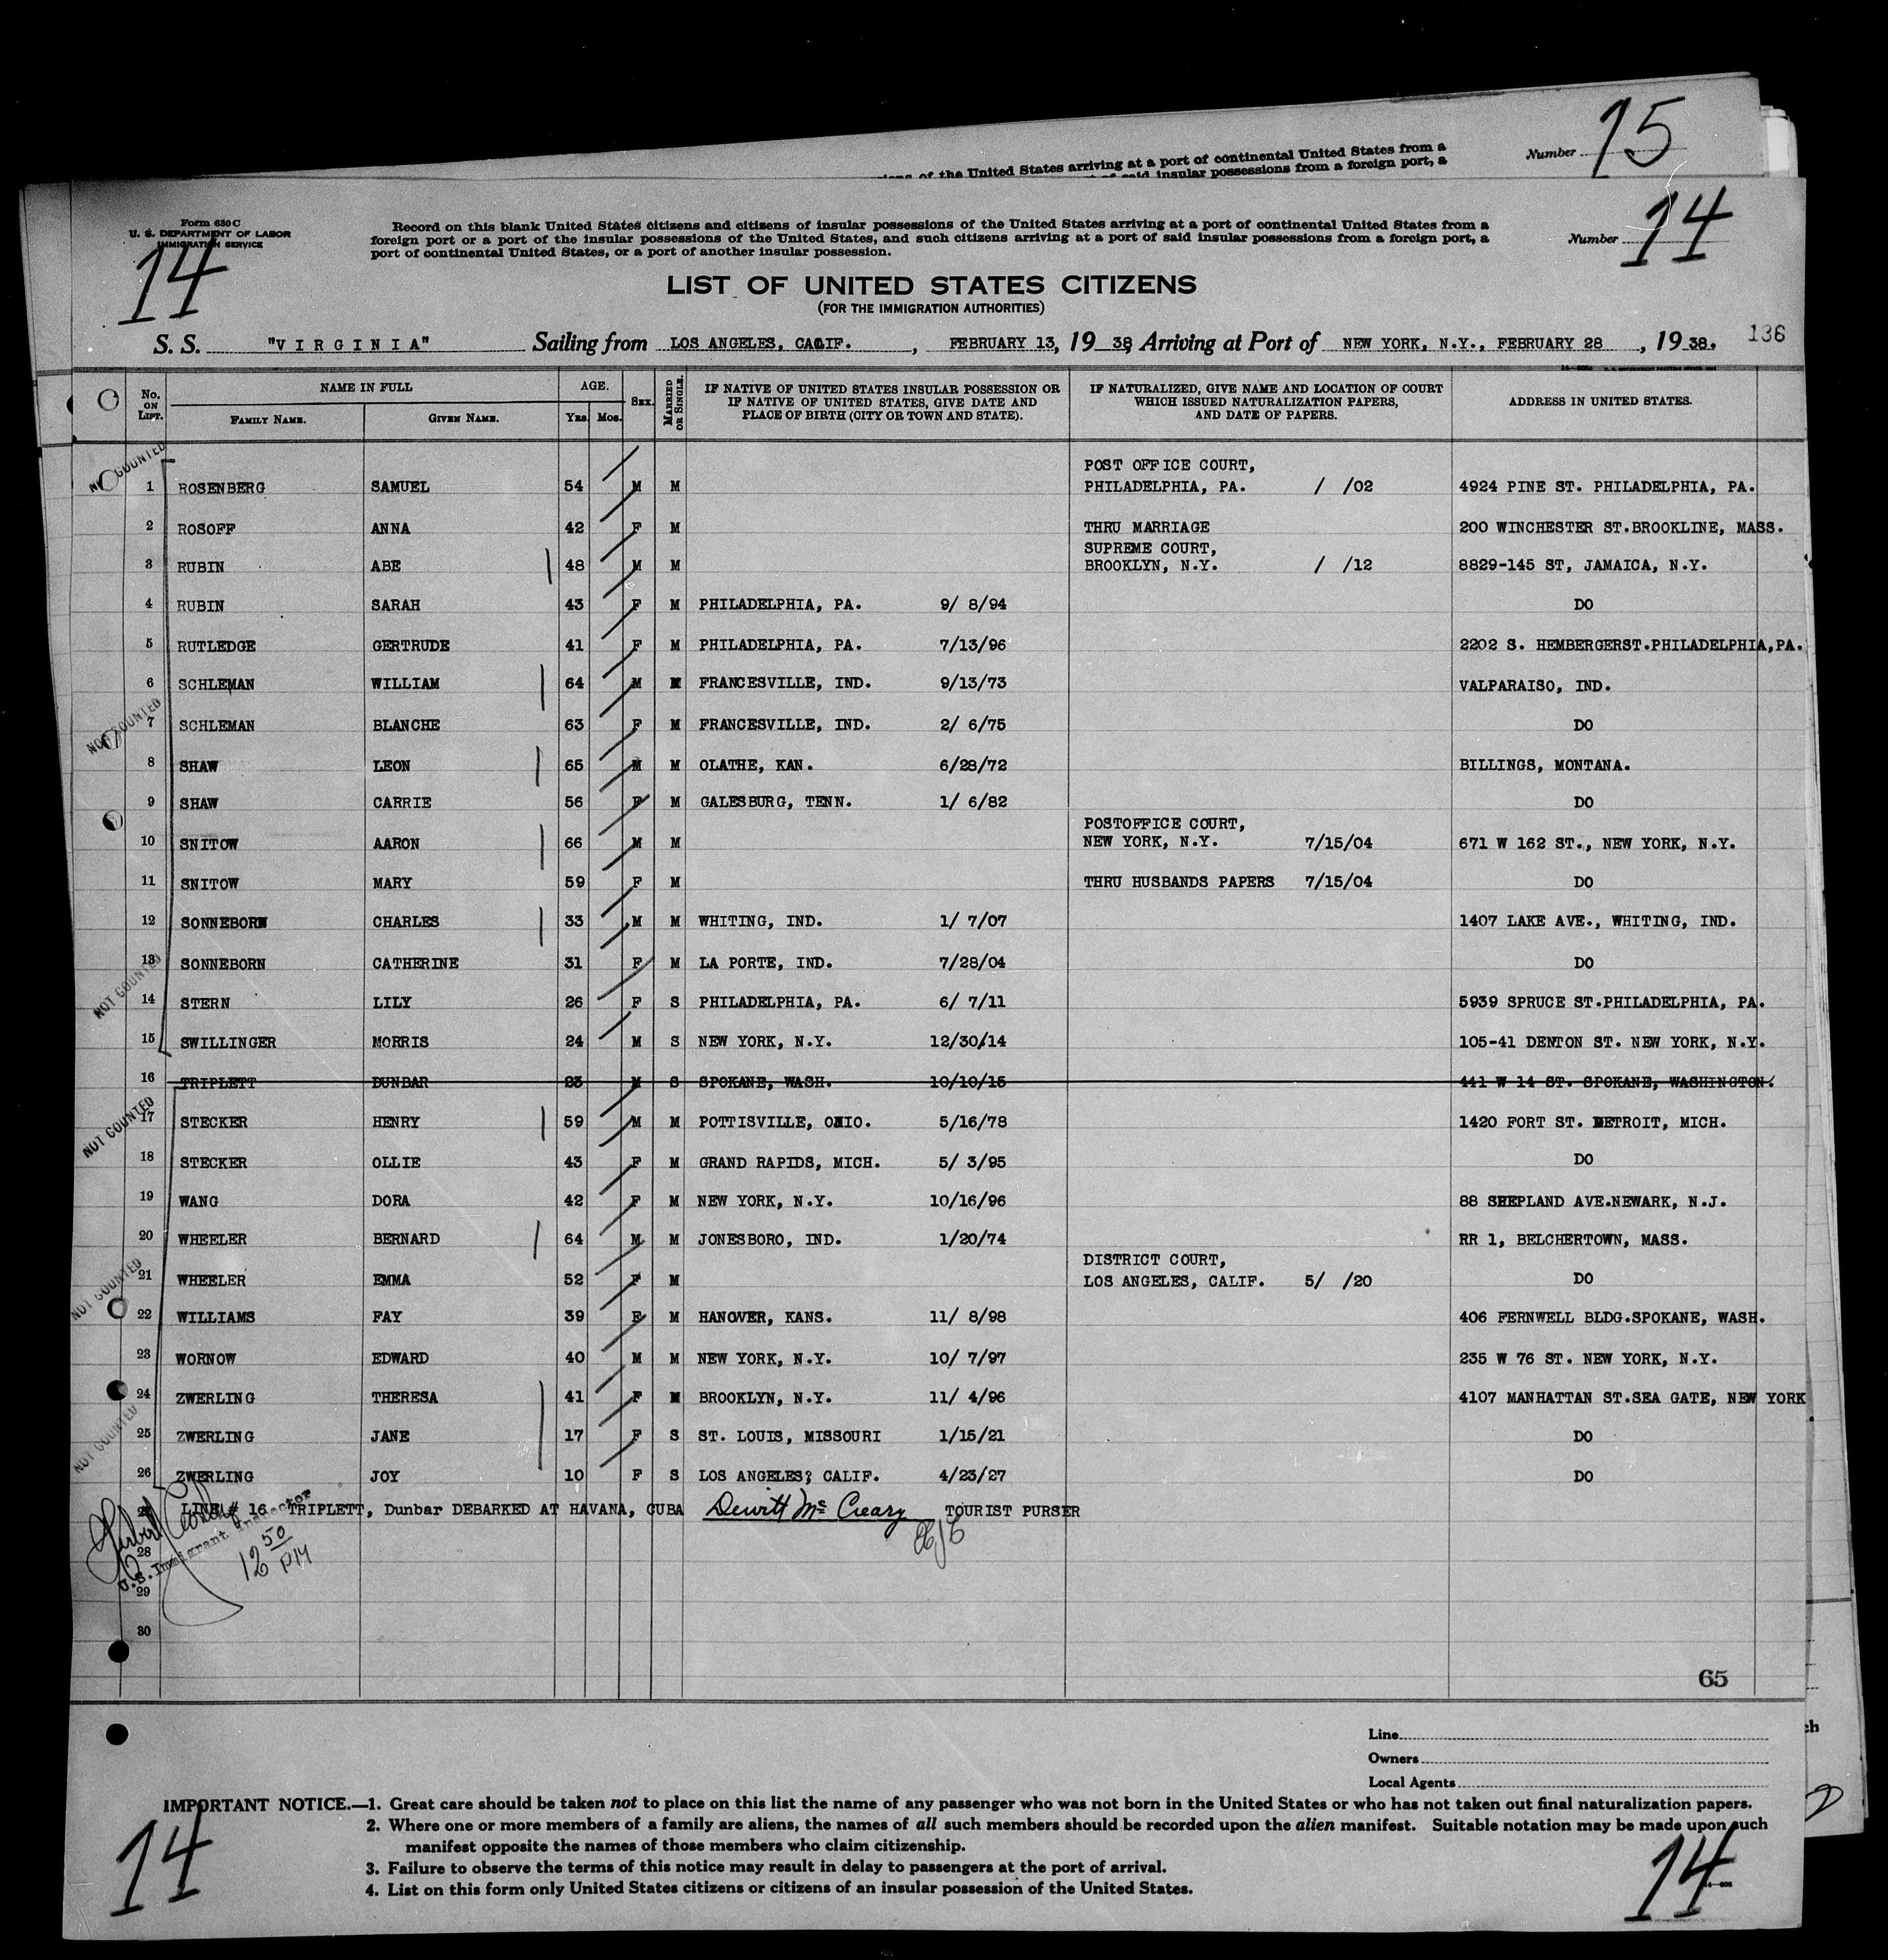 Number 15
ions of the United States arriving at a port of continental United States from a
of said insular possessions from a foreign port, a
Form 630 C
U. S. DEPARTMENT OF LABOR
IMMIGRATION SERVICE
14
Record on this blank United States citizens and citizens of insular possessions of the United States arriving at a port of continental United States from a
foreign port or a port of the insular possessions of the United States, and such citizens arriving at a port of said insular possessions from a foreign port, a
port of continental United States, or a port of another insular possession.
Number 14
LIST OF UNITED STATES CITIZENS
(FOR THE IMMIGRATION AUTHORITIES)
S. S. "VIRGINIA" Sailing from LOS ANGELES, CALIF. , FEBRUARY 13, 1938, Arriving at Port of NEW YORK, N.Y., FEBRUARY 28 , 1938. 136
No. ON LIST. NAME IN FULL FAMILY NAME. GIVEN NAME. AGE. Yrs. Mos. SEX. MARRIED OR SINGLE. IF NATIVE OF UNITED STATES INSULAR POSSESSION OR IF NATIVE OF UNITED STATES, GIVE DATE AND PLACE OF BIRTH (CITY OR TOWN AND STATE). IF NATURALIZED, GIVE NAME AND LOCATION OF COURT WHICH ISSUED NATURALIZATION PAPERS, AND DATE OF PAPERS. ADDRESS IN UNITED STATES.
NOT COUNTED
POST OFFICE COURT,
1 ROSENBERG SAMUEL 54 M M PHILADELPHIA, PA. / /02 4924 PINE ST. PHILADELPHIA, PA.
2 ROSOFF ANNA 42 F M THRU MARRIAGE 200 WINCHESTER ST.BROOKLINE, MASS.
SUPREME COURT,
3 RUBIN ABE 48 M M BROOKLYN, N.Y. / /12 8829-145 ST, JAMAICA, N.Y.
4 RUBIN SARAH 43 F M PHILADELPHIA, PA. 9/ 8/94 DO
5 RUTLEDGE GERTRUDE 41 F M PHILADELPHIA, PA. 7/13/96 2202 S. HEMBERGERST.PHILADELPHIA,PA.
6 SCHLEMAN WILLIAM 64 M M FRANCESVILLE, IND. 9/13/73 VALPARAISO, IND.
NOT COUNTED
7 SCHLEMAN BLANCHE 63 F M FRANCESVILLE, IND. 2/ 6/75 DO
8 SHAW LEON 65 M M OLATHE, KAN. 6/28/72 BILLINGS, MONTANA.
9 SHAW CARRIE 56 F M GALESBURG, TENN. 1/ 6/82 DO
POSTOFFICE COURT,
10 SNITOW AARON 66 M M NEW YORK, N.Y. 7/15/04 671 W 162 ST., NEW YORK, N.Y.
11 SNITOW MARY 59 F M THRU HUSBANDS PAPERS 7/15/04 DO
12 SONNEBORN CHARLES 33 M M WHITING, IND. 1/ 7/07 1407 LAKE AVE., WHITING, IND.
13 SONNEBORN CATHERINE 31 F M LA PORTE, IND. 7/28/04 DO
NOT COUNTED
14 STERN LILY 26 F S PHILADELPHIA, PA. 6/ 7/11 5939 SPRUCE ST.PHILADELPHIA, PA.
15 SWILLINGER MORRIS 24 M S NEW YORK, N.Y. 12/30/14 105-41 DENTON ST. NEW YORK, N.Y.
16 TRIPLETT DUNBAR 23 M S SPOKANE, WASH. 10/10/15 441 W 14 ST. SPOKANE, WASHINGTON.
NOT COUNTED
17 STECKER HENRY 59 M M POTTISVILLE, OHIO. 5/16/78 1420 FORT ST. DETROIT, MICH.
18 STECKER OLLIE 43 F M GRAND RAPIDS, MICH. 5/ 3/95 DO
19 WANG DORA 42 F M NEW YORK, N.Y. 10/16/96 88 SHEPLAND AVE.NEWARK, N.J.
20 WHEELER BERNARD 64 M M JONESBORO, IND. 1/20/74 RR 1, BELCHERTOWN, MASS.
DISTRICT COURT,
21 WHEELER EMMA 52 F M LOS ANGELES, CALIF. 5/ /20 DO
NOT COUNTED
22 WILLIAMS FAY 39 F M HANOVER, KANS. 11/ 8/98 406 FERNWELL BLDG.SPOKANE, WASH.
23 WORNOW EDWARD 40 M M NEW YORK, N.Y. 10/ 7/97 235 W 76 ST. NEW YORK, N.Y.
24 ZWERLING THERESA 41 F M BROOKLYN, N.Y. 11/ 4/96 4107 MANHATTAN ST.SEA GATE, NEW YORK.
NOT COUNTED
25 ZWERLING JANE 17 F S ST. LOUIS, MISSOURI 1/15/21 DO
26 ZWERLING JOY 10 F S LOS ANGELES? CALIF. 4/23/27 DO
LINE # 16 TRIPLETT, Dunbar DEBARKED AT HAVANA, CUBA Dewitt McCreary TOURIST PURSER
U.S. Immigrant Inspector
12 50 PM
28
29
30
65
Line
Owners
Local Agents
IMPORTANT NOTICE.—1. Great care should be taken not to place on this list the name of any passenger who was not born in the United States or who has not taken out final naturalization papers.
2. Where one or more members of a family are aliens, the names of all such members should be recorded upon the alien manifest. Suitable notation may be made upon such
manifest opposite the names of those members who claim citizenship.
3. Failure to observe the terms of this notice may result in delay to passengers at the port of arrival.
4. List on this form only United States citizens or citizens of an insular possession of the United States.
14
14